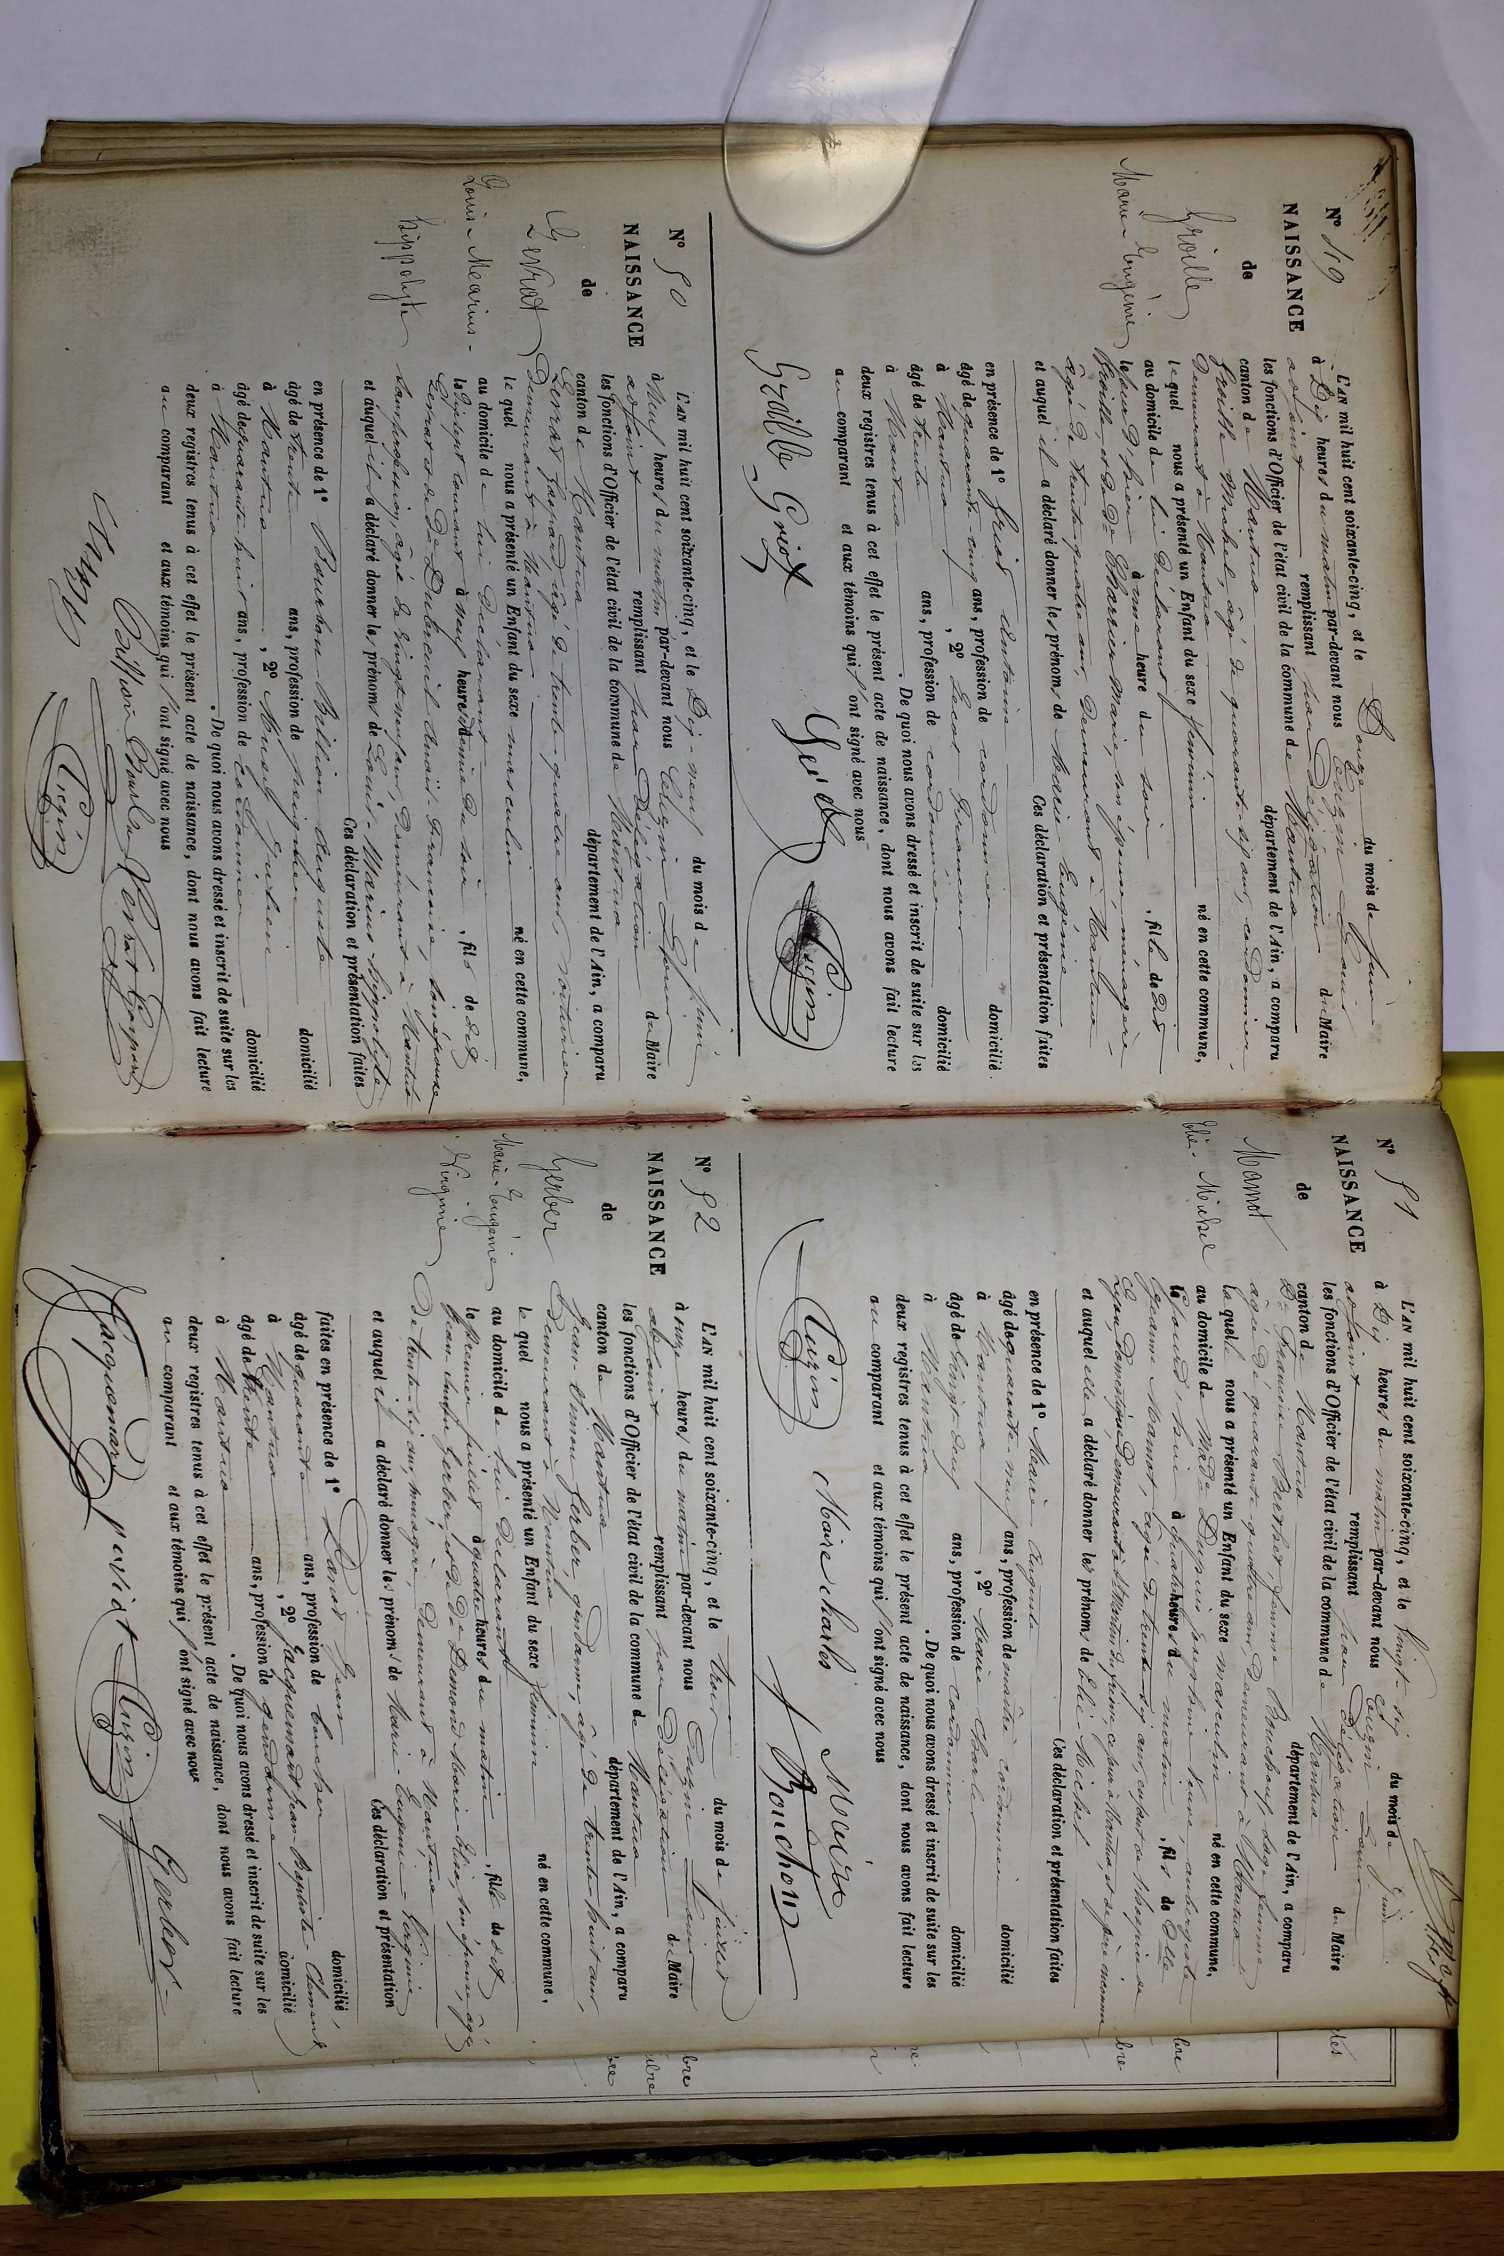 N° 49
NAISSANCE
de
Groille
Marie-Eugénie
L'AN mil huit cent soixante-cinq, et le Douze du mois de Juin
à Dix heures du matin par-devant nous Eugin Louis
adjoint remplissant par Délégation du Maire
les fonctions d'Officier de l'état civil de la commune de Nantua
canton de Nantua département de l'Ain, a comparu
Groille Michel, âgé de quarante six ans, cordonnier,
demeurant à Nantua
lequel nous a présenté un Enfant du sexe féminin né en cette commune,
au domicile de lui déclarant
le jour d'hier à onze heure du soir, fille de dit
Groille et de de Charrier Marie, son épouse, ménagère,
âgée de trente quatre ans, demeurant à Nantua
et auquel il a déclaré donner les prénoms de Marie Eugénie
Ces déclaration et présentation faites
en présence de 1° Griot Antoine domicilié
âgé de quarante cinq ans, profession de cordonnier
à Nantua, 2° Secot François domicilié
âgé de trente ans, profession de cordonnier
à Nantua. De quoi nous avons dressé et inscrit de suite sur les
deux registres tenus à cet effet le présent acte de naissance, dont nous avons fait lecture
au comparant et aux témoins qui l'ont signé avec nous
Groille Griot
N° 50
NAISSANCE
de
Levrat
Louis-Marius-
Hippolyte
L'AN mil huit cent soixante-cinq, et le Dix-neuf du mois de Juin
à Neuf heures du matin par-devant nous
adjoint remplissant par Délégation du Maire
les fonctions d'Officier de l'état civil de la commune de Nantua
canton de Nantua département de l'Ain, a comparu
Levrat Gaspard, âgé de trente quatre ans, voiturier
demeurant à Nantua
lequel nous a présenté un Enfant du sexe masculin né en cette commune,
au domicile de lui déclarant
le Dix sept courant à neuf heures du soir, fils de dit
Levrat et de de Dubreuil, son épouse
sans profession, âgée de vingt neuf ans, demeurant à Nantua
et auquel il a déclaré donner les prénoms de Louis-Marius-Hippolyte
Ces déclaration et présentation faites
en présence de 1° Bourbon Billion Auguste domicilié
âgé de trente ans, profession de
à Nantua, 2° domicilié
âgé de quarante huit ans, profession de cordonnier
à Nantua. De quoi nous avons dressé et inscrit de suite sur les
deux registres tenus à cet effet le présent acte de naissance, dont nous avons fait lecture
au comparant et aux témoins qui l'ont signé avec nous
Billion Bourbon Levrat Gaspard
N° 51
NAISSANCE
de
Mamot
Elie-Michel
L'AN mil huit cent soixante-cinq, et le vingt-six du mois de Juin
à Dix heures du matin par-devant nous Eugin Louis
adjoint remplissant par Délégation du Maire
les fonctions d'Officier de l'état civil de la commune de Nantua
canton de Nantua département de l'Ain, a comparu
De Françoise Berthet, femme Bouchoux, sage femme
âgée de quarante quatre ans, demeurant à Nantua
laquelle nous a présenté un Enfant du sexe masculin né en cette commune,
au domicile de veuve, aubergiste
le jourd'hui à quatre heures du matin, fils de Elle
et auquel elle a déclaré donner les prénoms de Elie-Michel
Ces déclaration et présentation faites
en présence de 1° Maire Auguste domicilié
âgé de quarante neuf ans, profession de maître cordonnier
à Nantua, 2° Maire Charles domicilié
âgé de vingt deux ans, profession de cordonnier
à Nantua. De quoi nous avons dressé et inscrit de suite sur les
deux registres tenus à cet effet le présent acte de naissance, dont nous avons fait lecture
au comparant et aux témoins qui l'ont signé avec nous
Maire charles Maire
f Bouchoux
N° 52
NAISSANCE
de
Gerber
Marie-Eugénie-
Virginie
L'AN mil huit cent soixante-cinq, et le trois du mois de Juillet
à onze heures du matin par-devant nous Eugin Louis
adjoint remplissant par Délégation du Maire
les fonctions d'Officier de l'état civil de la commune de Nantua
canton de Nantua département de l'Ain, a comparu
Jean-Simon Gerber, gendarme, âgé de trente huit ans,
Demeurant à Nantua
lequel nous a présenté un Enfant du sexe féminin né en cette commune,
au domicile de lui déclarant
le premier Juillet à quatre heures du matin, fille de dit
Jean-Simon Gerber, et de De Demond Marie-Elisa son épouse, âgée
De trente six ans, ménagère, demeurant à Nantua
et auquel il a déclaré donner les prénoms de Marie-Eugénie-Virginie
Ces déclaration et présentation
faites en présence de 1° Jean domicilié,
âgé de quarante ans, profession de boucher
à Nantua, 2° Jacquemard Jean-Baptiste-Clément domicilié
âgé de trente ans, profession de gendarme
à Nantua. De quoi nous avons dressé et inscrit de suite sur les
deux registres tenus à cet effet le présent acte de naissance, dont nous avons fait lecture
au comparant et aux témoins qui l'ont signé avec nous
Gerber
Jacquemard